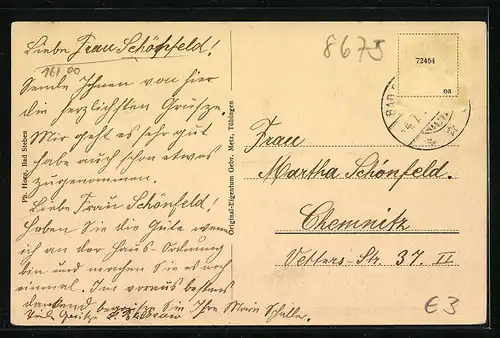 Liebe Frau Schönfeld!
Sende Ihnen von hier
die herzlichsten Grüsse.
Mir geht es sehr gut
habe auch schon etwas
zugenommen.
Liebe Frau Schönfeld!
Haben Sie die Güte wenn
ich an der Haus-Ordnung
bin und machen Sie es noch
einmal. Im voraus bestens
dankend Sie Ihre Marie Schaller.
Ph. Horg, Bad Steben
Original-Eigentum Gebr. Metz, Tübingen
8675
72464
oa
BAD
Frau
Martha Schönfeld.
Chemnitz
Vetters-Str. 37. II
€3